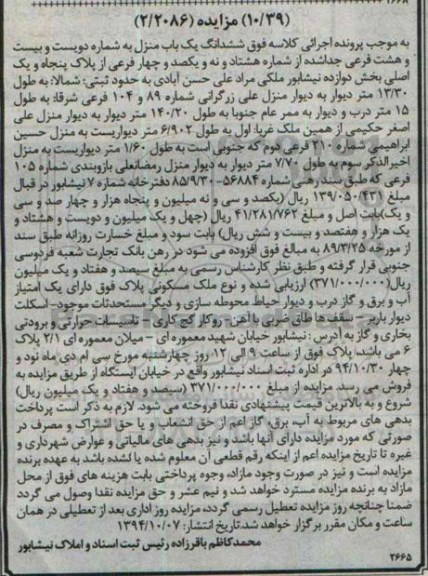 ۲۶۶۸
(۱۰/۳۹) مزایده (۲/۲۰۸۶)
به موجب پرونده اجرائی کلاسه فوق ششدانگ یک باب منزل به شماره دویست و بیست
و هشت فرعی جداشده از شماره هشتاد و نه و یکصد و چهار فرعی از پلاک پنجاه و یک
اصلی بخش دوازده نیشابور ملکی مراد علی حسن آبادی به حدود ثبتی: شمالا: به طول
۱۳/۳۰ متر دیوار به دیوار منزل علی زرگرانی شماره ۸۹ و ۱۰۴ فرعی شرقا: به طول
۱۵ متر درب و دیوار به ممر عام جنوبا به طول ۱۴۰/۲۰ متر دیوار به دیوار منزل علی
اصغر حکیمی از همین ملک غربا: اول به طول ۶/۹۰۲ متر دیواریست به منزل حسین
ابراهیمی شماره ۲۱۰ فرعی دوم که جنوبی است به طول ۱/۶۰ متر دیواریست به منزل
اخیرالذکر سوم به طول ۷/۷۰ متر دیوار به دیوار منزل رمضانعلی بازوبندی شماره ۱۰۵
فرعی که طبق سند رهنی شماره ۵۶۸۸۴-۸۵/۹/۳۰ دفترخانه شماره ۷ نیشابور در قبال
مبلغ ۱۳۹/۰۵۰/۴۳۱ ریال (یکصد و سی و نه میلیون و پنجاه هزار و چهار صد و سی
و یک) بابت اصل و مبلغ ۴۱/۲۸۱/۷۶۲ ریال (چهل و یک میلیون و دویست و هشتاد و
یک هزار و هفتصد و بیست و شش ریال) بابت سود و مبلغ خسارت روزانه طبق سند
از مورخه ۸۹/۳/۲۵ به مبالغ فوق افزوده می شود در رهن بانک تجارت شعبه فردوسی
جنوبی قرار گرفته و طبق نظر کارشناس رسمی به مبلغ سیصد و هفتاد و یک میلیون
ریال (۳۷۱/۰۰۰/۰۰۰) ارزیابی شده و نوع ملک مسکونی پلاک فوق دارای یک امتیاز
آب و برق و گاز درب و دیوار حیاط محوطه سازی و دیگر مستحدثات موجود- اسکلت
دیوار باربر- سقف ها طاق ضربی با آهن- روکار گچ کاری - تاسیسات حرارتی و برودتی
بخاری و گاز به آدرس : نیشابور خیابان شهید معموره ای - میلان معموره ای ۲/۱ پلاک
۶ می باشد، پلاک فوق از ساعت ۹ الی ۱۲ روز چهارشنبه مورخ سی ام دی ماه نود و
چهار ۹۴/۱۰/۳۰ در اداره ثبت اسناد نیشابور واقع در خیابان ایستگاه از طریق مزایده به
فروش می رسد. مزایده از مبلغ ۳۷۱/۰۰۰/۰۰۰ (سیصد و هفتاد و یک میلیون ریال)
شروع و به بالاترین قیمت پیشنهادی نقدا فروخته می شود. لازم به ذکر است پرداخت
بدهی های مربوط به آب، برق، گاز اعم از حق انشعاب و یا حق اشتراک و مصرف در
صورتی که مورد مزایده دارای آنها باشد و نیز بدهی های مالیاتی و عوارض شهرداری و
غیره تا تاریخ مزایده اعم از اینکه رقم قطعی آن معلوم شده یا نشده باشد به عهده برنده
مزایده است و نیز در صورت وجود مازاد، وجوه پرداختی بابت هزینه های فوق از محل
مازاد به برنده مزایده مسترد خواهد شد و نیم عشر و حق مزایده نقدا وصول می گردد
ضمنا چنانچه روز مزایده تعطیل رسمی گردد، مزایده روز اداری بعد از تعطیلی در همان
ساعت و مکان مقرر برگزار خواهد شد.تاریخ انتشار: ۱۳۹۴/۱۰/۰۷
محمدکاظم باقرزاده رئیس ثبت اسناد و املاک نیشابور
۲۶۶۵